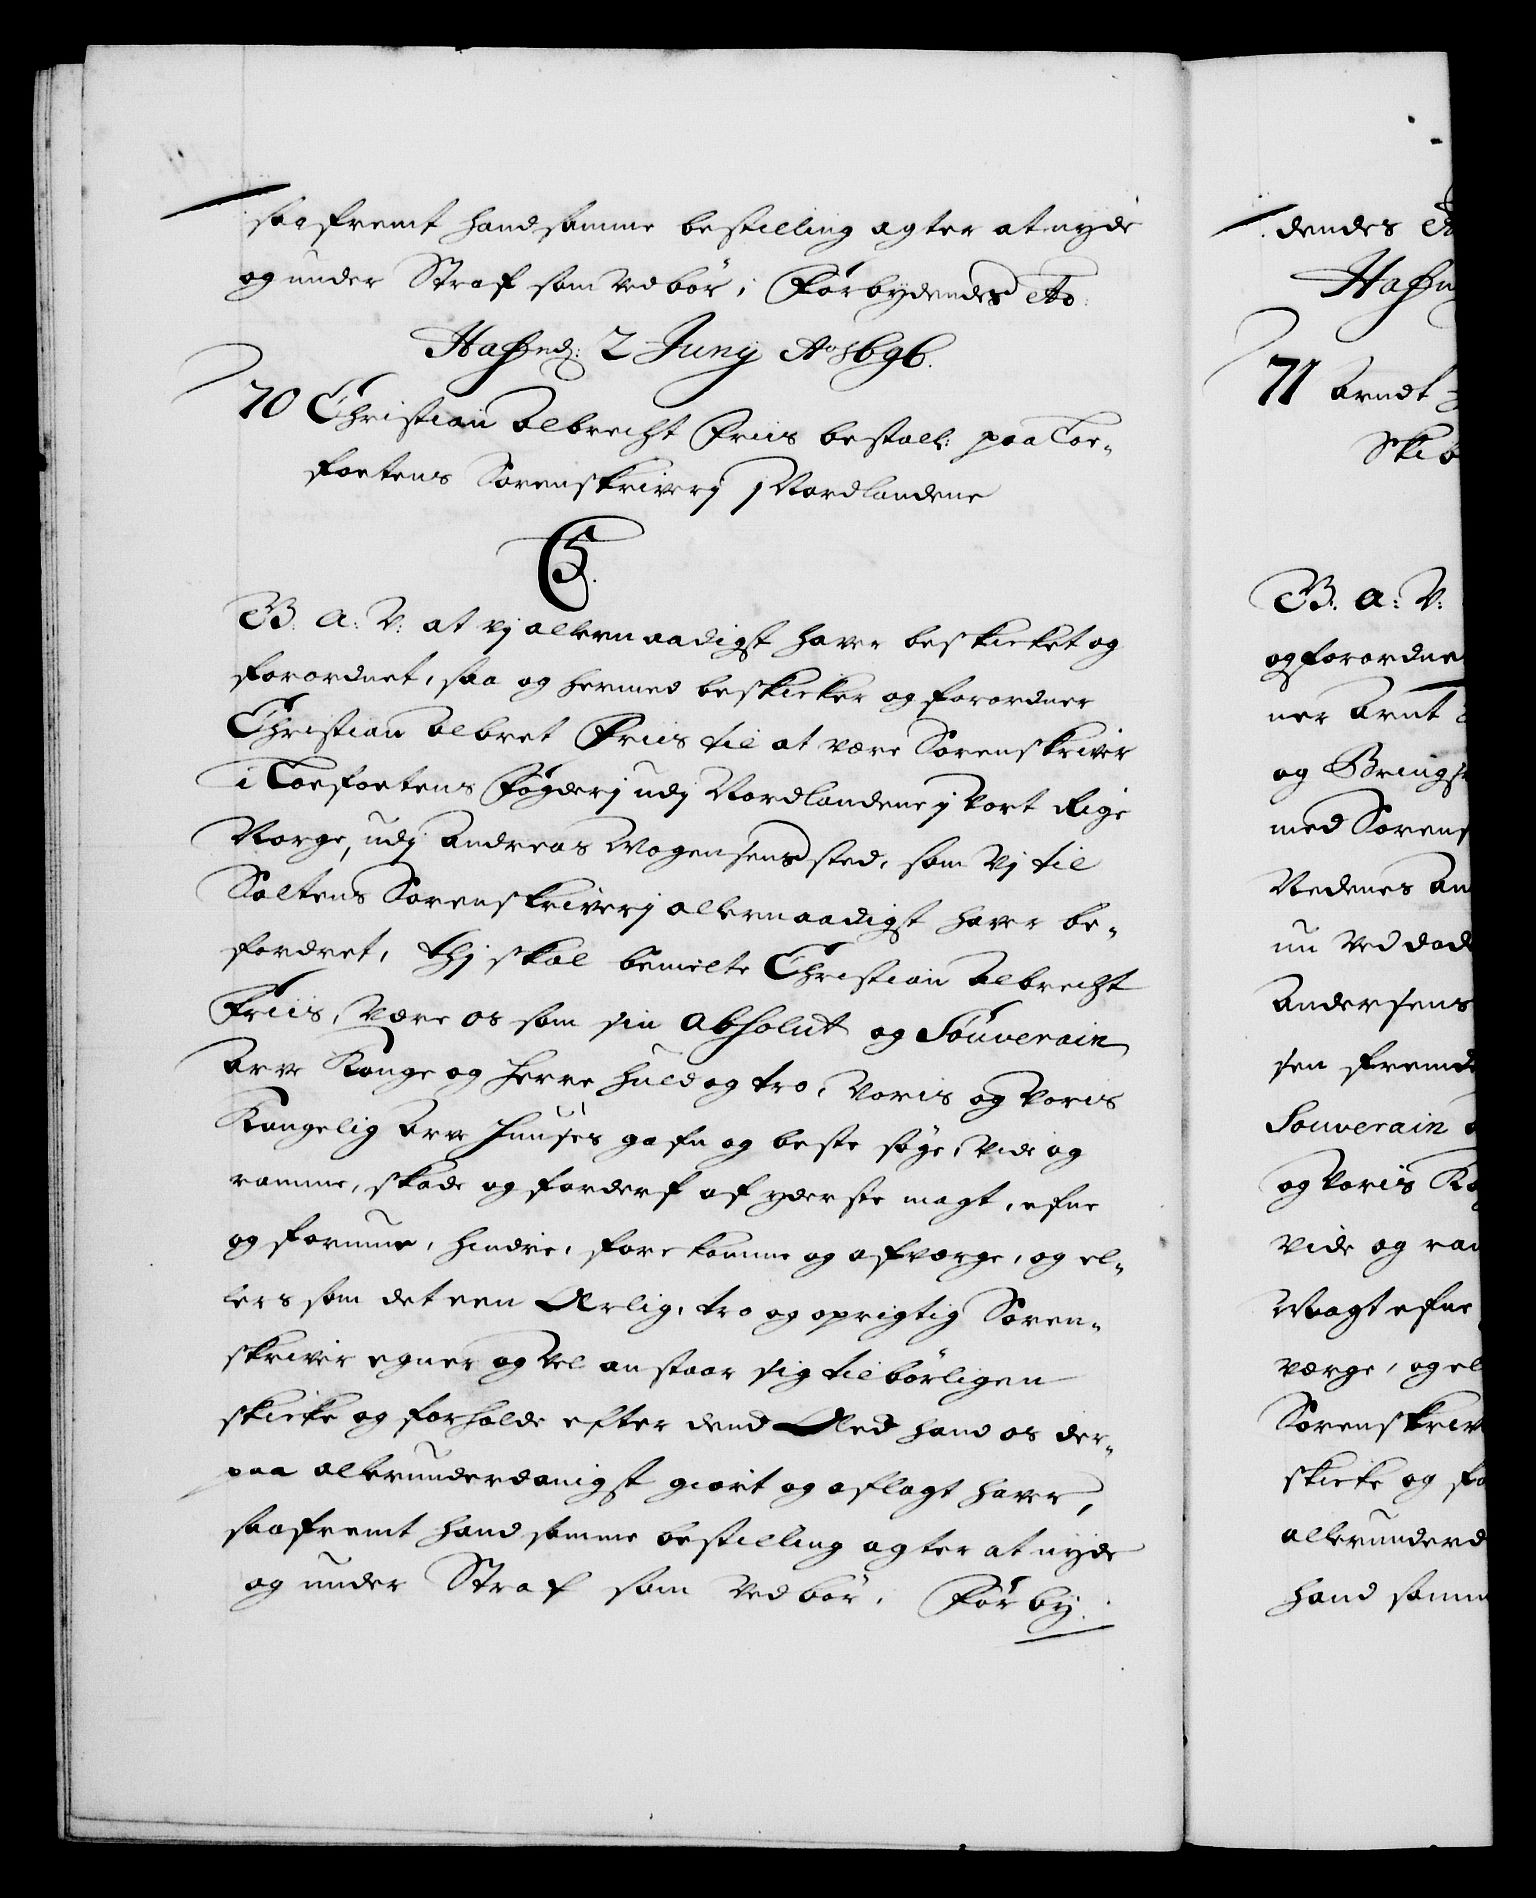 saafremt hand samme bestilling agter at nyde
og under Straf som ved bør, Forbydendes etc:
Hafnæ: 2 Junij Ao 1696.
70 Christian Albrecht Friis bestall: paa Loe-
foetens Sorenskriverj j Nordlandene
C5.
G. A: V: at vj allernaadigst hafver beskicket og
forordnet, saa og hermed beskicker og forordner
Christian Albret Friis til at være Sorenskriver
i Loefoetens Fogderj udj Nordlandene j vort Rige
Norge, udj Andreas Mogensens sted, som vj til
Saltens Sorenskriverj allernaadigst hafver be-
fordret, thj skal bemelte Christian Albrecht
Friis, være os som sin absolut og Souverain
Arve Konge og Herre huld og tro, voris og voris
Kongelig Arve Huuses gafn og beste søge, vide og
ramme, skade og forderf af yderste magt, efne
og formue, hindre, forekomme og afværge, og el-
lers som det een Ærlig, tro og oprigtig Soren-
skriver egner og vel anstaar sig tilbørligen
skicke og forholde efter dend Æed hand os der-
paa allerunderdanigst giort og aflagt hafver,
saafremt hand samme bestilling agter at nyde
og under Straf som ved bør. Forby:
dendes
Hafn
71 Arndt
Skib
G. A: V:
og forordne
ner Arnt
og Brings
med Sorens
Nedenes Am
nu ved død
Andersens
sen fremd
Souverain
og voris Ko
vide og ram
Magt efne
værge, og el
Sorenskriv
skicke og fo
allerunderd
hand samm